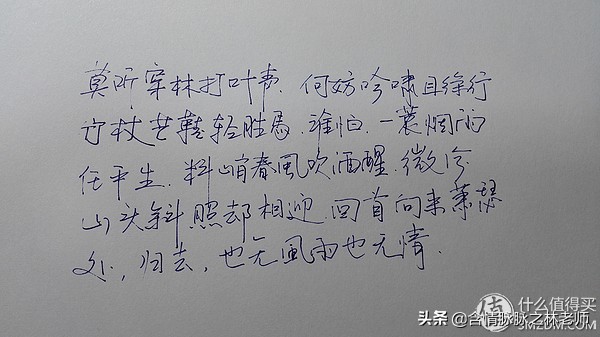 莫听穿林打叶声.何妨吟啸且徐行
竹杖芒鞋轻胜马.谁怕.一蓑烟雨
任平生.料峭春風吹酒醒.微冷
山头斜照却相迎.回首向来萧瑟
处,归去,也无風雨也无情.
头条 @含情脉脉之林老师
值 什么值得买
SMZDM.COM